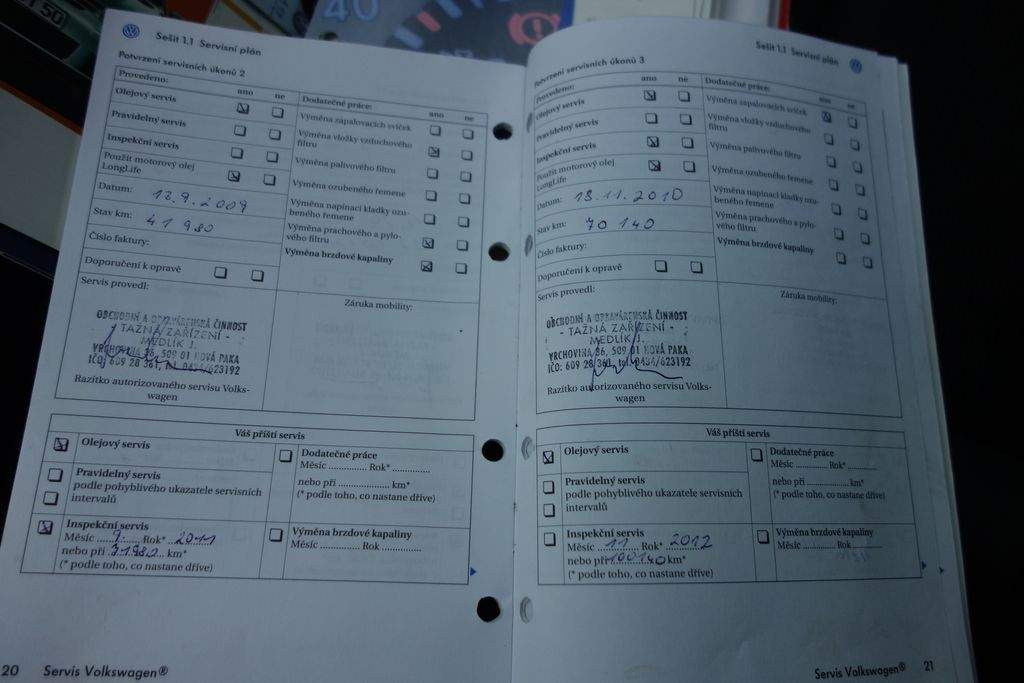 50
40
Sešit 1.1 Servisní plán
Potvrzení servisních úkonů 2
Provedeno:
ano
ne
Olejový servis
Pravidelný servis
Inspekční servis
Použit motorový olej
LongLife
Datum: 18.9.2009
Stav km: 41 980
Číslo faktury:
Doporučení k opravě
Servis provedl:
OBCHODNÍ A OPRAVÁRENSKÁ ČINNOST
- TAŽNÁ ZAŘÍZENÍ -
MEDLÍK J.
VRCHOVINA 36, 509 01 NOVÁ PAKA
IČO: 609 28 361, tel. 0434/623192
Razítko autorizovaného servisu Volks-
wagen
Dodatečné práce:
ano
ne
Výměna zapalovacích svíček
Výměna vložky vzduchového
filtru
Výměna palivového filtru
Výměna ozubeného řemene
Výměna napínací kladky ozu-
beného řemene
Výměna prachového a pylo-
vého filtru
Výměna brzdové kapaliny
Záruka mobility:
Váš příští servis
Olejový servis
Pravidelný servis
podle pohyblivého ukazatele servisních
intervalů
Inspekční servis
Měsíc 9 Rok* 2011
nebo při km*
(* podle toho, co nastane dříve)
Dodatečné práce
Měsíc .............. Rok* ..............
nebo při ....................... km*
(* podle toho, co nastane dříve)
Výměna brzdové kapaliny
Měsíc .............. Rok ..............
20 Servis Volkswagen®
Sešit 1.1 Servisní plán
Potvrzení servisních úkonů 3
Provedeno:
ano
ne
Olejový servis
Pravidelný servis
Inspekční servis
Použit motorový olej
LongLife
Datum: 18.11.2010
Stav km: 70 140
Číslo faktury:
Doporučení k opravě
Servis provedl:
OBCHODNÍ A OPRAVÁRENSKÁ ČINNOST
- TAŽNÁ ZAŘÍZENÍ -
MEDLÍK J.
VRCHOVINA 36, 509 01 NOVÁ PAKA
IČO: 609 28 361, tel. 0434/623192
Razítko autorizovaného servisu Volks-
wagen
Dodatečné práce:
ano
ne
Výměna zapalovacích svíček
Výměna vložky vzduchového
filtru
Výměna palivového filtru
Výměna ozubeného řemene
Výměna napínací kladky ozu-
beného řemene
Výměna prachového a pylo-
vého filtru
Výměna brzdové kapaliny
Záruka mobility:
Váš příští servis
Olejový servis
Pravidelný servis
podle pohyblivého ukazatele servisních
intervalů
Inspekční servis
Měsíc 11 Rok* 2012
nebo při 100140 km*
(* podle toho, co nastane dříve)
Dodatečné práce
Měsíc .............. Rok* ..............
nebo při ....................... km*
(* podle toho, co nastane dříve)
Výměna brzdové kapaliny
Měsíc .............. Rok ..............
Servis Volkswagen® 21